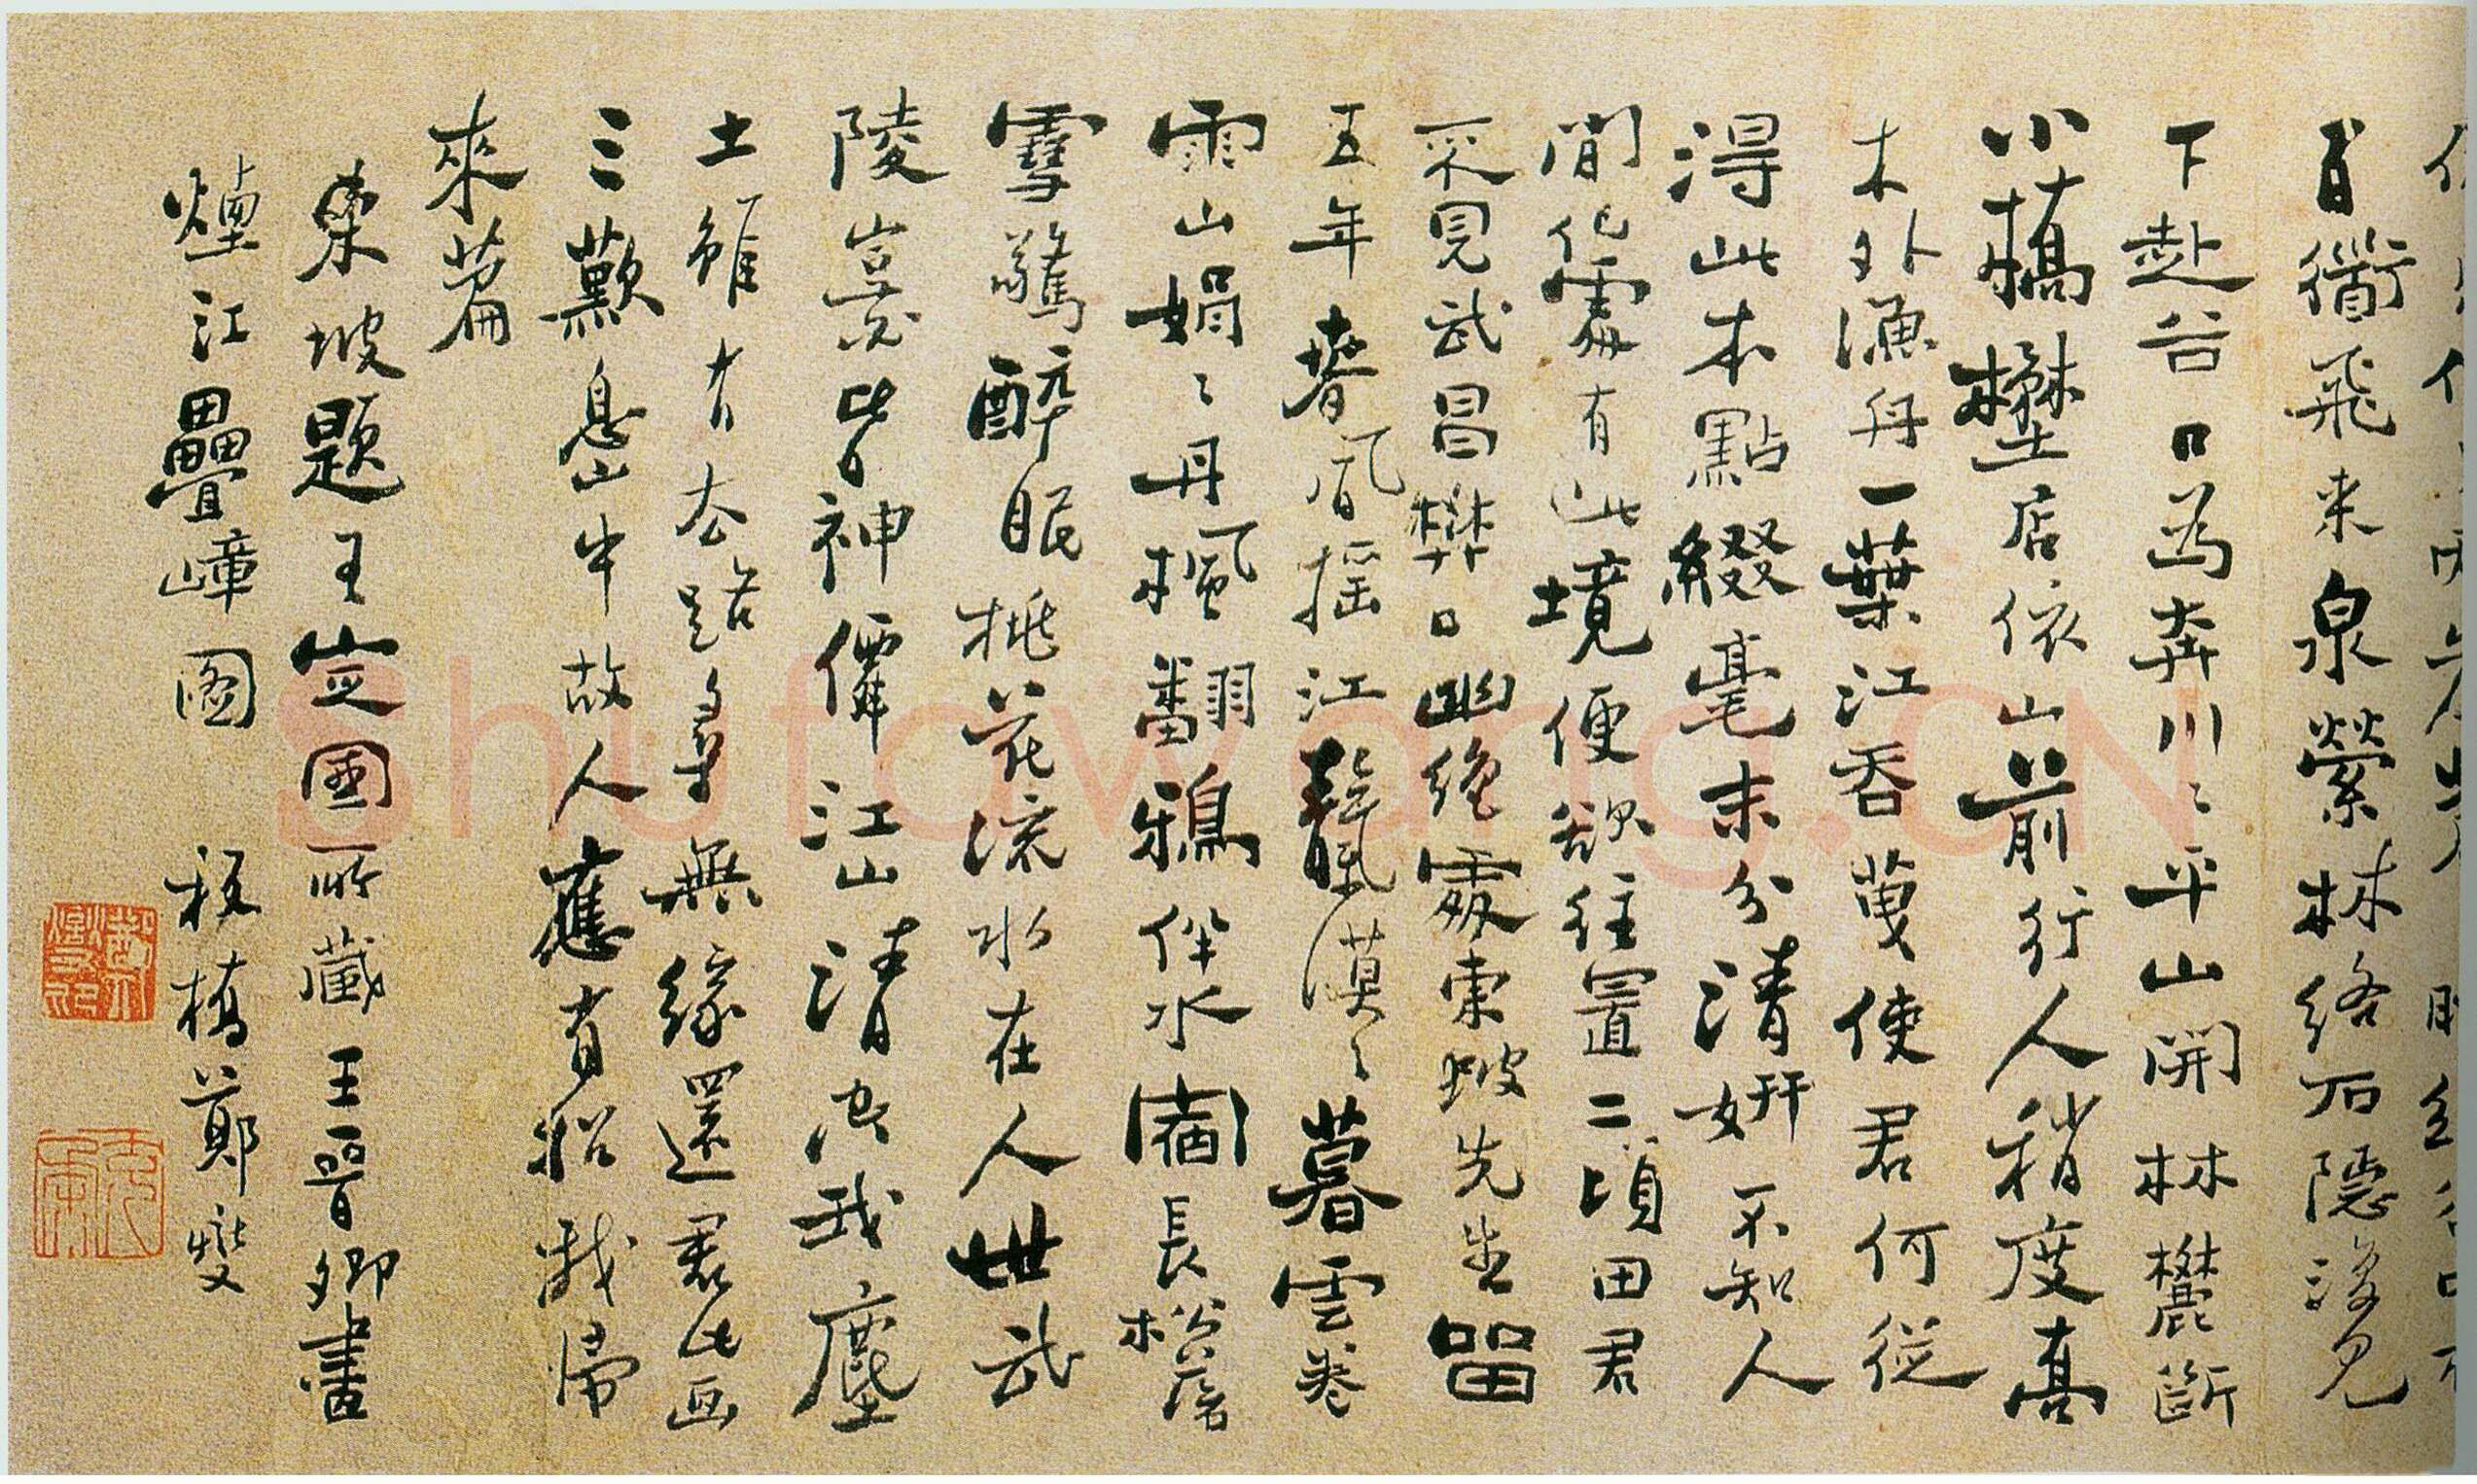 百道飛来泉縈林絡石隱復見
下赴谷口為奔川〻平山開林麓斷
小橋壄店依山前行人稍度喬
木外漁舟一葉江吞使君何從
得此本點綴毫末分清妍不知人
間處有此境便欲往置二頃田君
不見武昌樊口幽絕處東坡先生留
五年春風搖江靝漠〻暮雲卷
雨山娟〻丹楓翻鴉伴水宿長松落
雪驚醉眠桃花流水在人世武
陵豈必皆神僊江山清空我塵
土雖有去路尋無緣還君此画
三歎息山中故人應有招我歸
來篇
東坡題王定國所藏王晉卿畫
煙江疊嶂圖 板橋鄭燮
Shufawang.CN